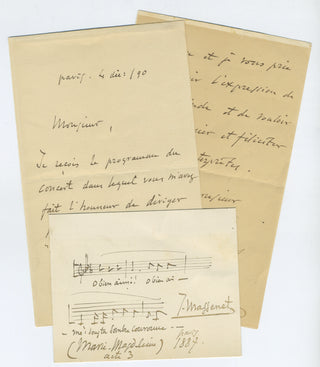 paris. 4 déc: /90
Monsieur,
Je reçois le programme du
concert dans lequel vous m'avez
fait l'honneur de diriger
et je vous prie
l'expression de
et de vouloir
et féliciter
interprètes.
monsieur
O bien aimé! O bien ai-
- mé! sous ta
(Marie-Magdeleine)
acte 3
J. Massenet
paris
1887.